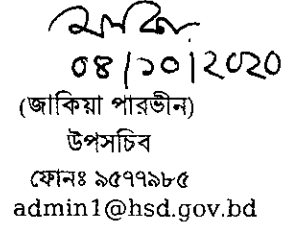 ০৪/১০/২০২০
(জাকিয়া পারভীন)
উপসচিব
ফোনঃ ৯৫৭৭৯৮৫
admin1@hsd.gov.bd